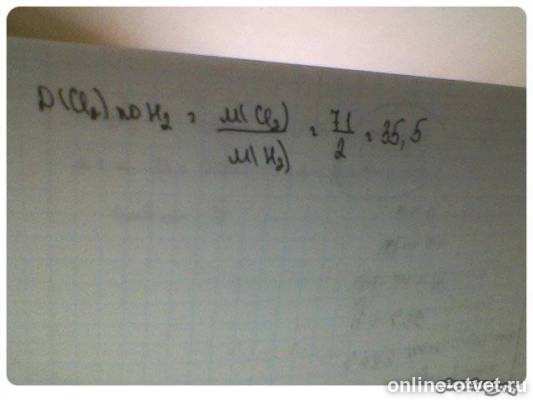 D(Cl₂) по H₂ = M(Cl₂) / M(H₂) = 71 / 2 = 35,5
online-otvet.ru